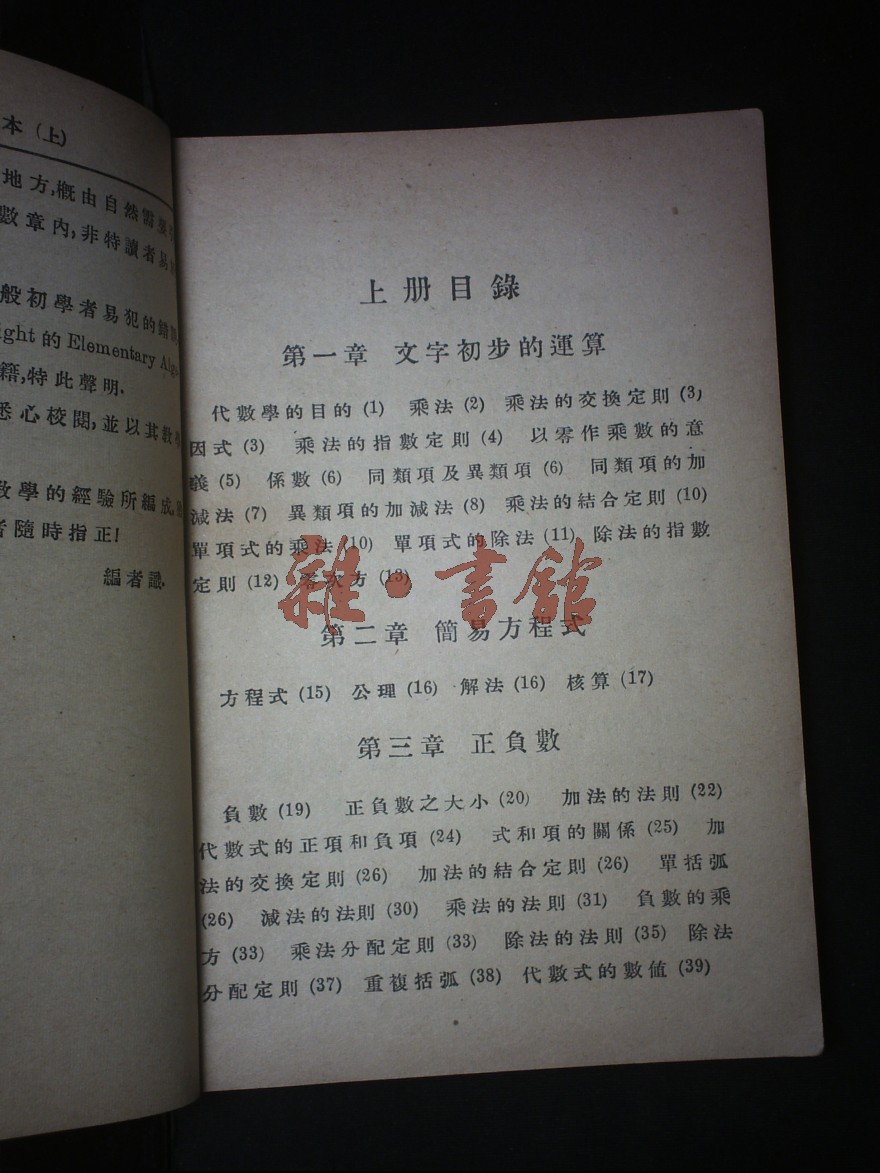 本 (上)
地方,概由自然需要
數章內,非特讀者易
般初學者易犯的錯誤
ight 的 Elementary Alg
籍,特此聲明.
悉心校閱,並以其教學
教學的經驗所編成,
者隨時指正!
編者識.
上册目錄
第一章 文字初步的運算
代數學的目的 (1) 乘法 (2) 乘法的交換定則 (3)
因式 (3) 乘法的指數定則 (4) 以零作乘數的意
義 (5) 係數 (6) 同類項及異類項 (6) 同類項的加
減法 (7) 異類項的加減法 (8) 乘法的結合定則 (10)
單項式的乘法 (10) 單項式的除法 (11) 除法的指數
定則 (12) 零次方 (13)
雜·書館
第二章 簡易方程式
方程式 (15) 公理 (16) 解法 (16) 核算 (17)
第三章 正負數
負數 (19) 正負數之大小 (20) 加法的法則 (22)
代數式的正項和負項 (24) 式和項的關係 (25) 加
法的交換定則 (26) 加法的結合定則 (26) 單括弧
(26) 減法的法則 (30) 乘法的法則 (31) 負數的乘
方 (33) 乘法分配定則 (33) 除法的法則 (35) 除法
分配定則 (37) 重複括弧 (38) 代數式的數値 (39)